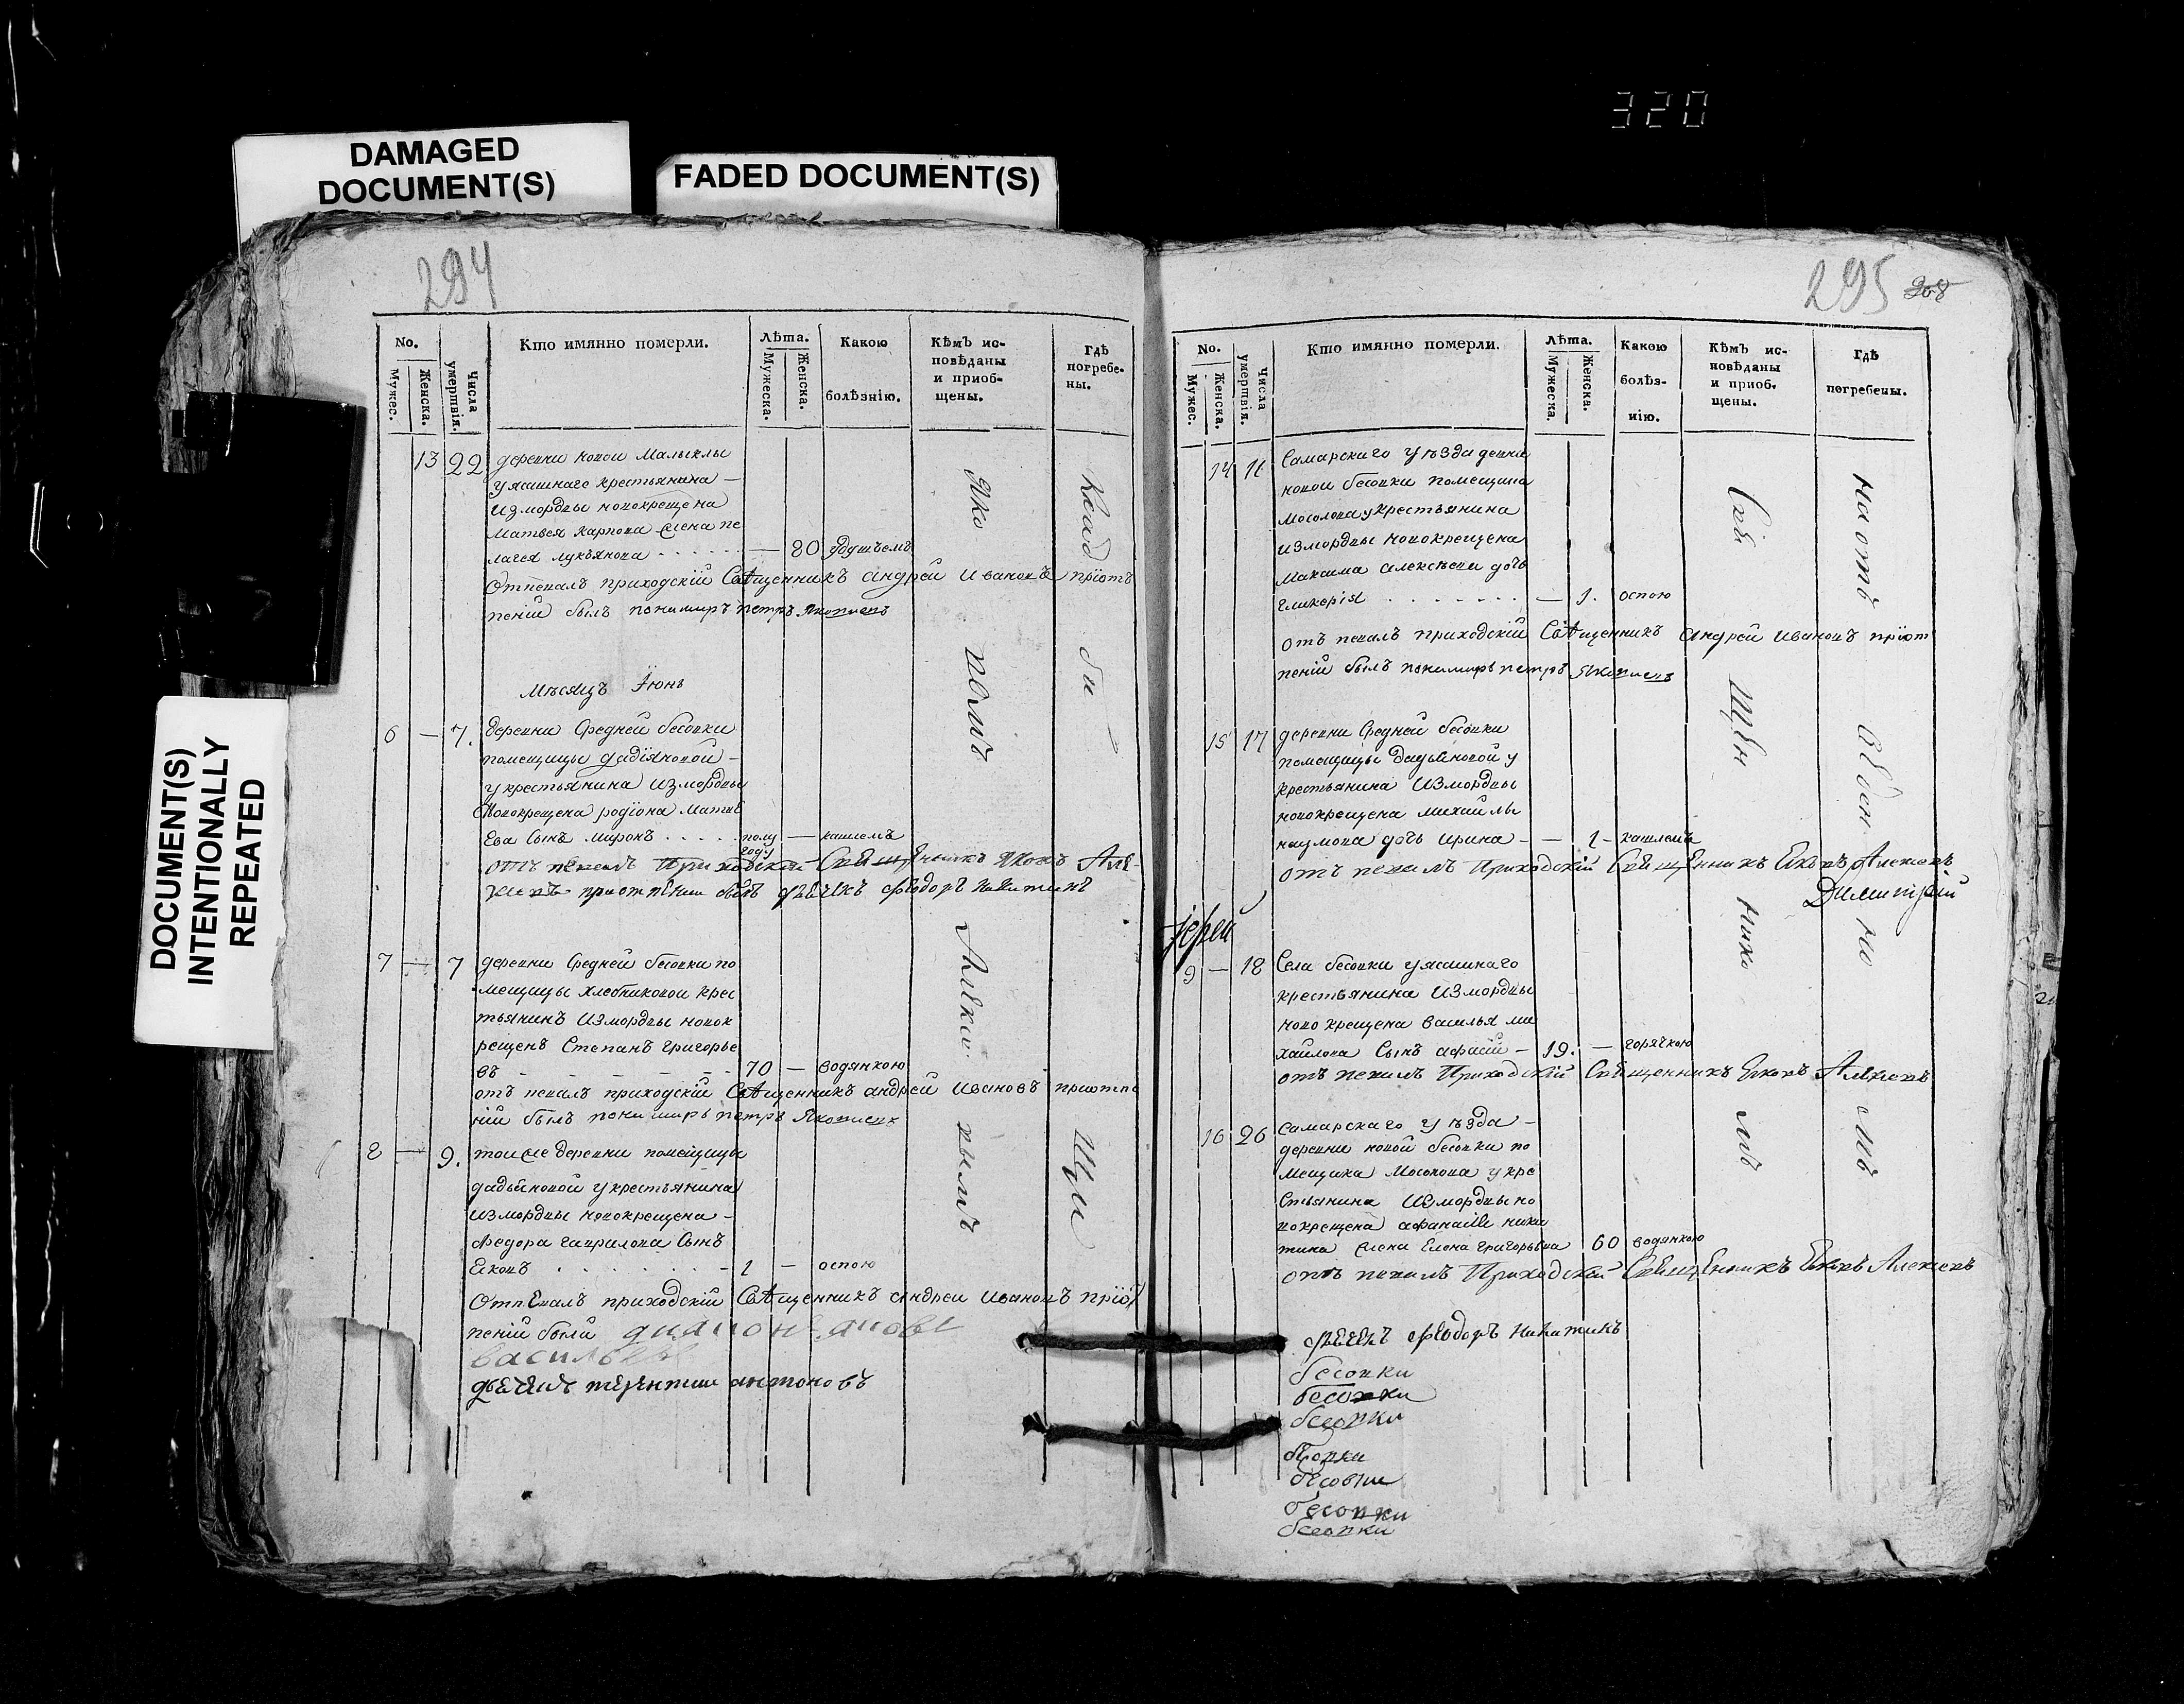 320
DAMAGED
DOCUMENT(S)
FADED DOCUMENT(S)
DOCUMENT(S)
INTENTIONALLY
REPEATED
294
No.
Мужес.
Женска.
Числа
умертвія.
Кто имянно померли.
Лѣта.
Мужеска.
Женска.
Какою
болѣзнію.
Кѣмъ ис-
повѣданы
и пріоб-
щены.
Гдѣ
погребе-
ны.
13 22 деревни новои Малыклы
у ясашнаго крестьянина —
измордвы новокрещена
Матвея карпова жена пе
лагея лукьянова — 80
Отпевалъ приходскій Свѧщенникъ андрей Ивановъ приотъ
пеніи былъ понимарь петръ Яковлевъ
Мѣсяцъ Іюнь
6 — 7. деревни Средней бесовки
помещицы дадіяновой —
у крестьянина измордвы
Новокрещена родіона Матве
Ева Сынъ миронъ полу — кашлемъ
году
отъ певалъ Приходскай Свѣщенникъ Яковъ Але-
приотпении былъ дьѣчекъ Ѳедоръ Никитинъ
7 — 7 деревни Средней бесовки по
мещицы хлебниковои крес
тьянинъ Измордвы новок
рещенъ Степанъ григорье
въ 70 — водянкою
отъ певалъ приходскій Свѧщенникъ андрей Ивановъ приотпе
ніи былъ понимарь петръ Яковлевъ
8 — 9. тоиже деревни помещицы
дадьяновой у крестьянина
измордвы новокрещена —
Федора гаврилова Сынъ
Еѵковъ 1 — оспою
Отпевалъ приходскій Свѧщенникъ андреи Ивановъ приот
пеніи были
васильевъ
дьечекъ терентии антоновъ
Яко
вомъ
Алекѵе
вымъ
Клад
би
щи
295
268
No.
Мужес.
Женска.
Числа
умертвія.
Кто имянно померли.
Лѣта.
Мужеска.
Женска.
Какою
болѣз-
нію.
Кѣмъ ис-
повѣданы
и пріоб-
щены.
Гдѣ
погребены.
14 11 Самарскаго уѣзда девни
новои бесовки помещика
Мосолова у крестьянина
измордвы новокрещена
Максима алексѣева дочь
гликерія — 1. оспою
отъ певалъ приходскій Свѧщенникъ андрей Ивановъ приот
пеніи былъ понимарь петръ Яковлевъ
15 17 деревни Средней бесовки
помещицы дадьяновой у
крестьянина Измордвы
новокрещена михайлы
наумова дочь ирина — — 1 — кашлемъ
отъ певалъ Приходскій Свѣщенникъ Еѵковъ Алексевъ
Димитрій
Іерей
9 — 18 Села бесовки у ясашнаго
крестьянина Измордвы
ново крещена василья ми
хайлова Сынъ — 19. — горячкою
отъ певалъ Приходскій Свѣщенникъ Еѵковъ Алексевъ
16 26 Самарскаго уѣзда —
деревни новой бесовки по
мещика Мосолова у кре
стьянина Измордвы но
вокрещена афанасія ники
тина жена Елена григорьевна 60 водянкою
отъ певалъ Приходской Свѣщенникъ Еѵковъ Алексевъ
дьечекъ Ѳедоръ Никитинъ
бесовки
бесовки
бесовки
бесовки
бесовки
бесовки
бесовки
Свѣ
щен
нико
мъ
на отъ
веден
но
мъ